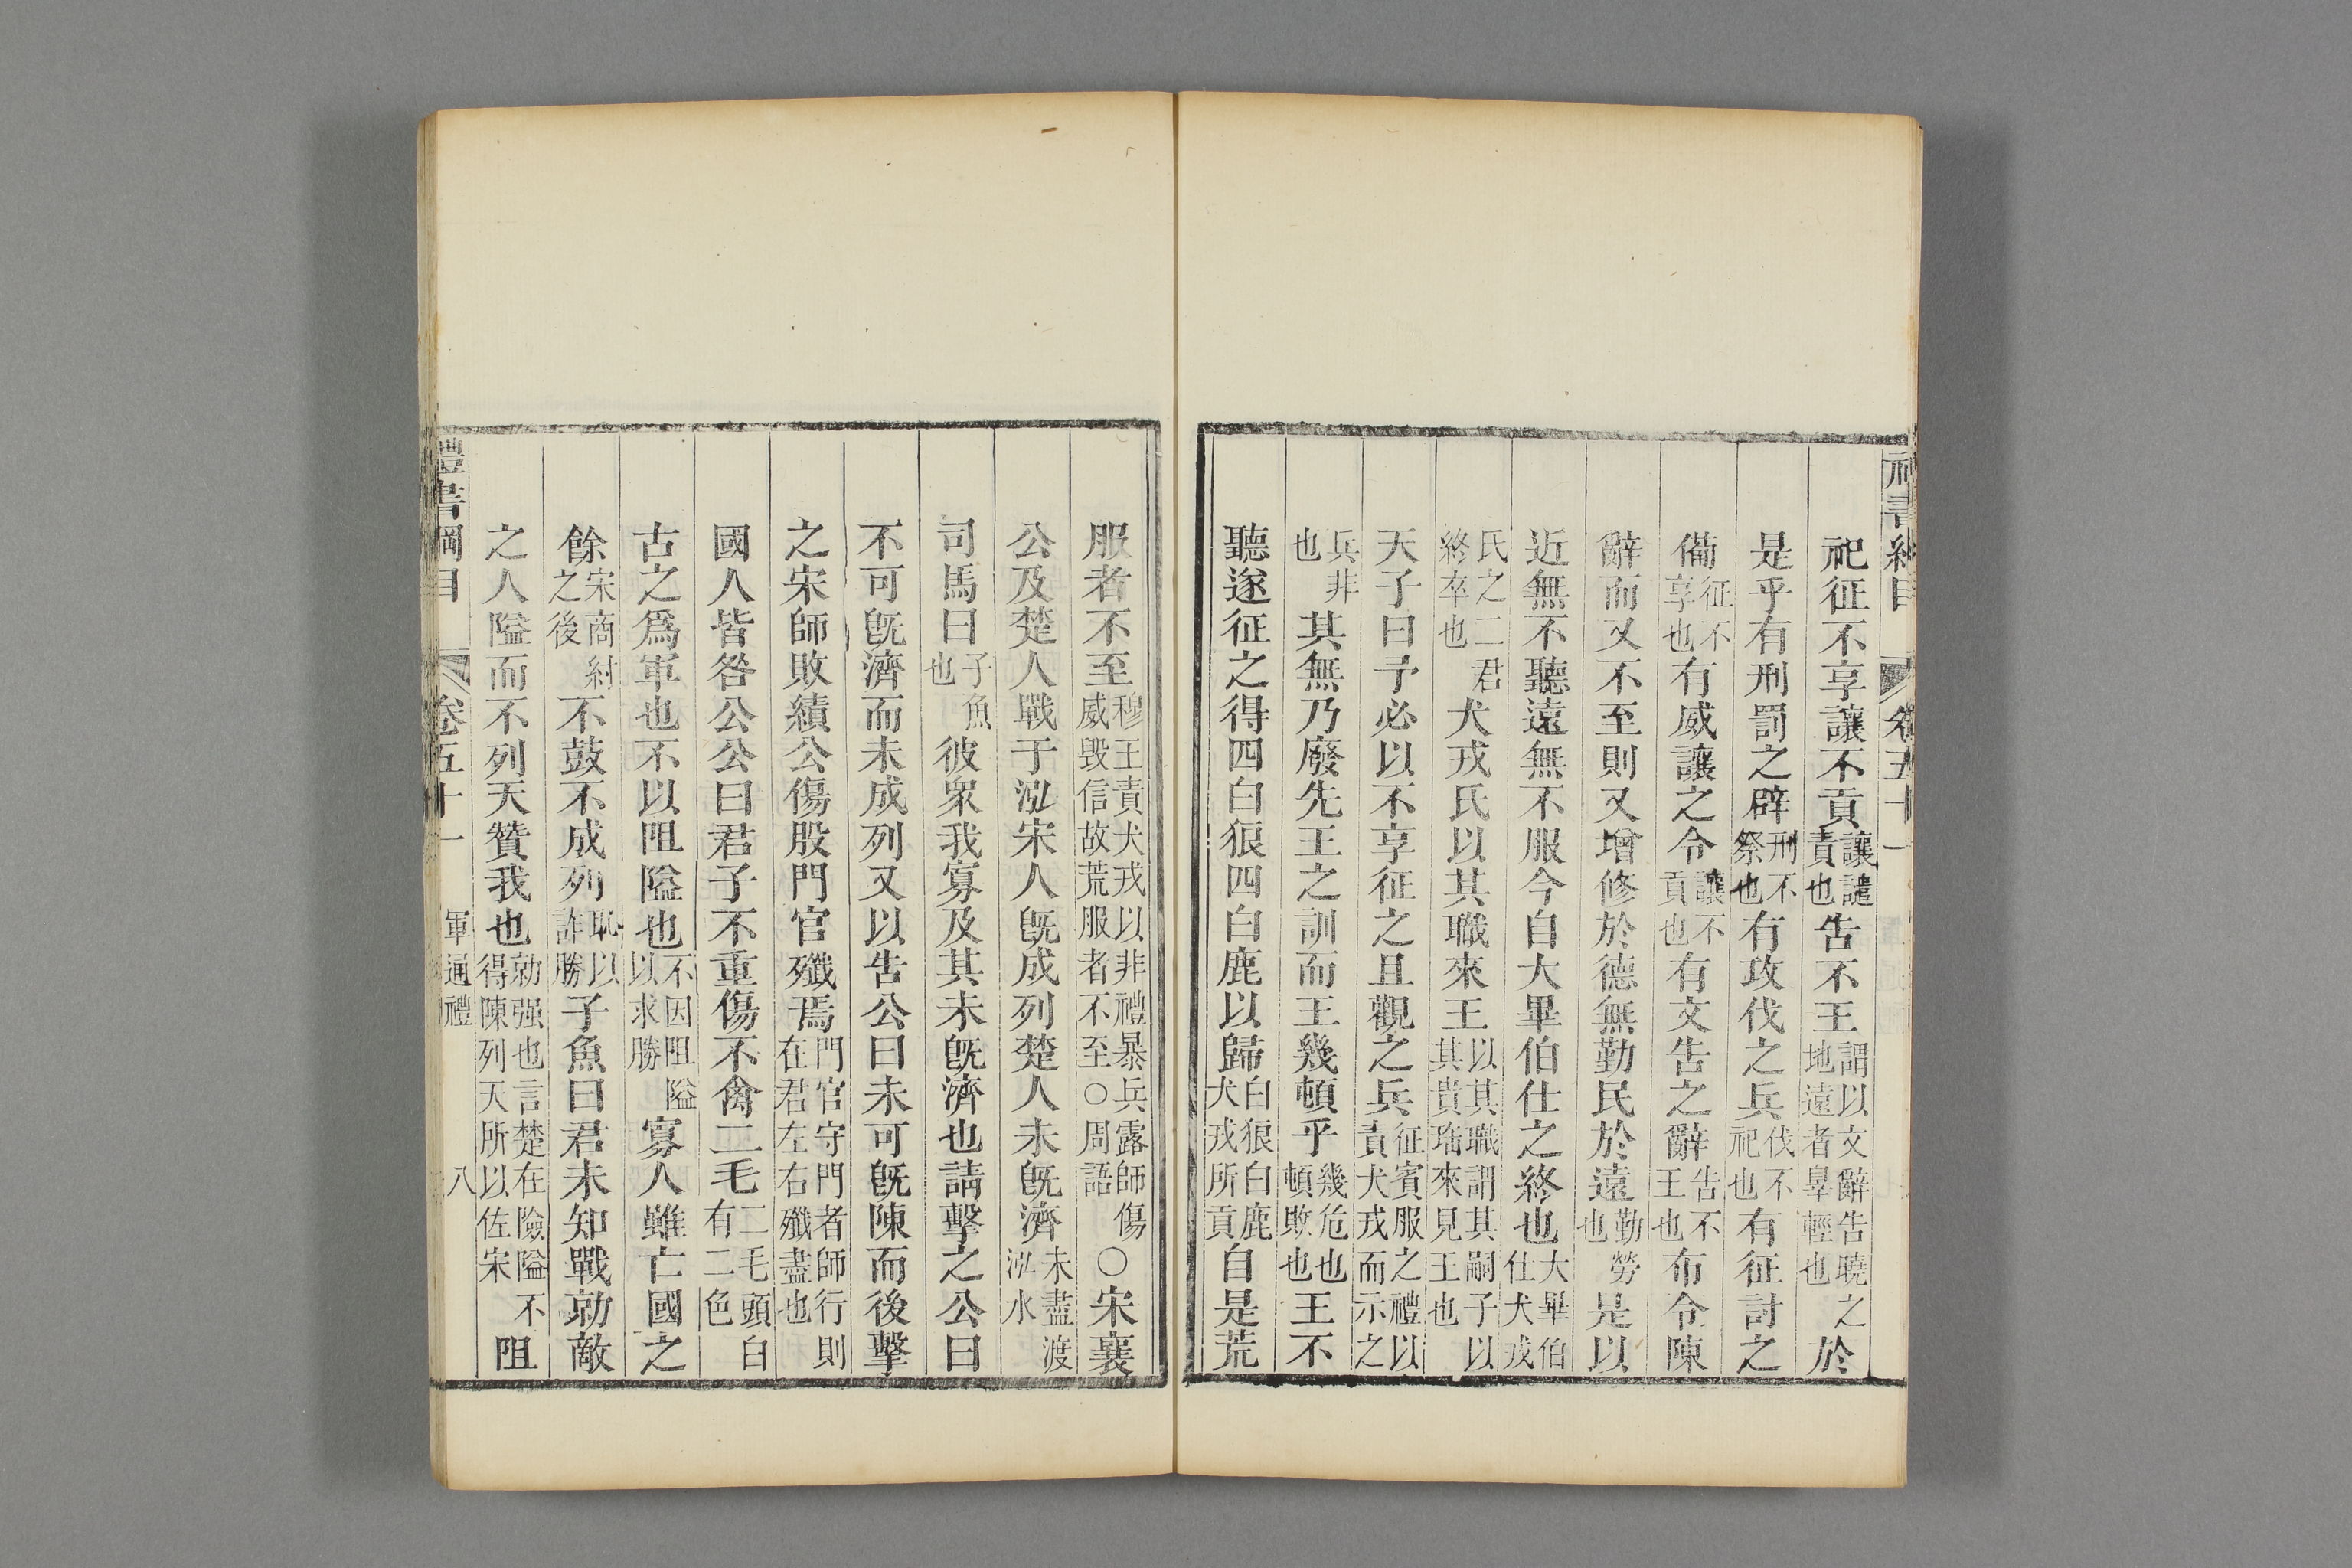 祀征不享讓不貢讓譴責也告不王謂以文辭告曉之地遠者辠輕也於
是乎有刑罰之辟刑不祭也有攻伐之兵伐不祀也有征討之
備征不享也有威讓之令讓不貢也有文告之辭告不王也布令陳
辭而又不至則又增修於德無勤民於遠勤勞也是以
近無不聽遠無不服今自大畢伯仕之終也大畢伯仕犬戎
氏之二君終卒也犬戎氏以其職來王以其職謂其嗣子以其貴珤來見王也
天子曰予必以不享征之且觀之兵征賓服之禮以責犬戎而示之
兵非也其無乃廢先王之訓而王幾頓乎幾危也頓敗也王不
聽遂征之得四白狼四白鹿以歸白狼白鹿犬戎所貢自是荒
服者不至穆王責犬戎以非禮暴兵露師傷威毀信故荒服者不至○周語○宋襄
公及楚人戰于泓宋人旣成列楚人未旣濟未盡渡泓水
司馬曰子魚也彼衆我寡及其未旣濟也請擊之公曰
不可旣濟而未成列又以告公曰未可旣陳而後擊
之宋師敗績公傷股門官殲焉門官守門者師行則在君左右殲盡也
國人皆咎公公曰君子不重傷不禽二毛二毛頭白有二色
古之爲軍也不以阻隘也不因阻隘以求勝寡人雖亡國之
餘宋商紂之後不鼓不成列恥以詐勝子魚曰君未知戰勍敵
之人隘而不列天贊我也勍强也言楚在險隘不得陳列天所以佐宋阻
禮書綱目 卷五十一 軍通禮 八